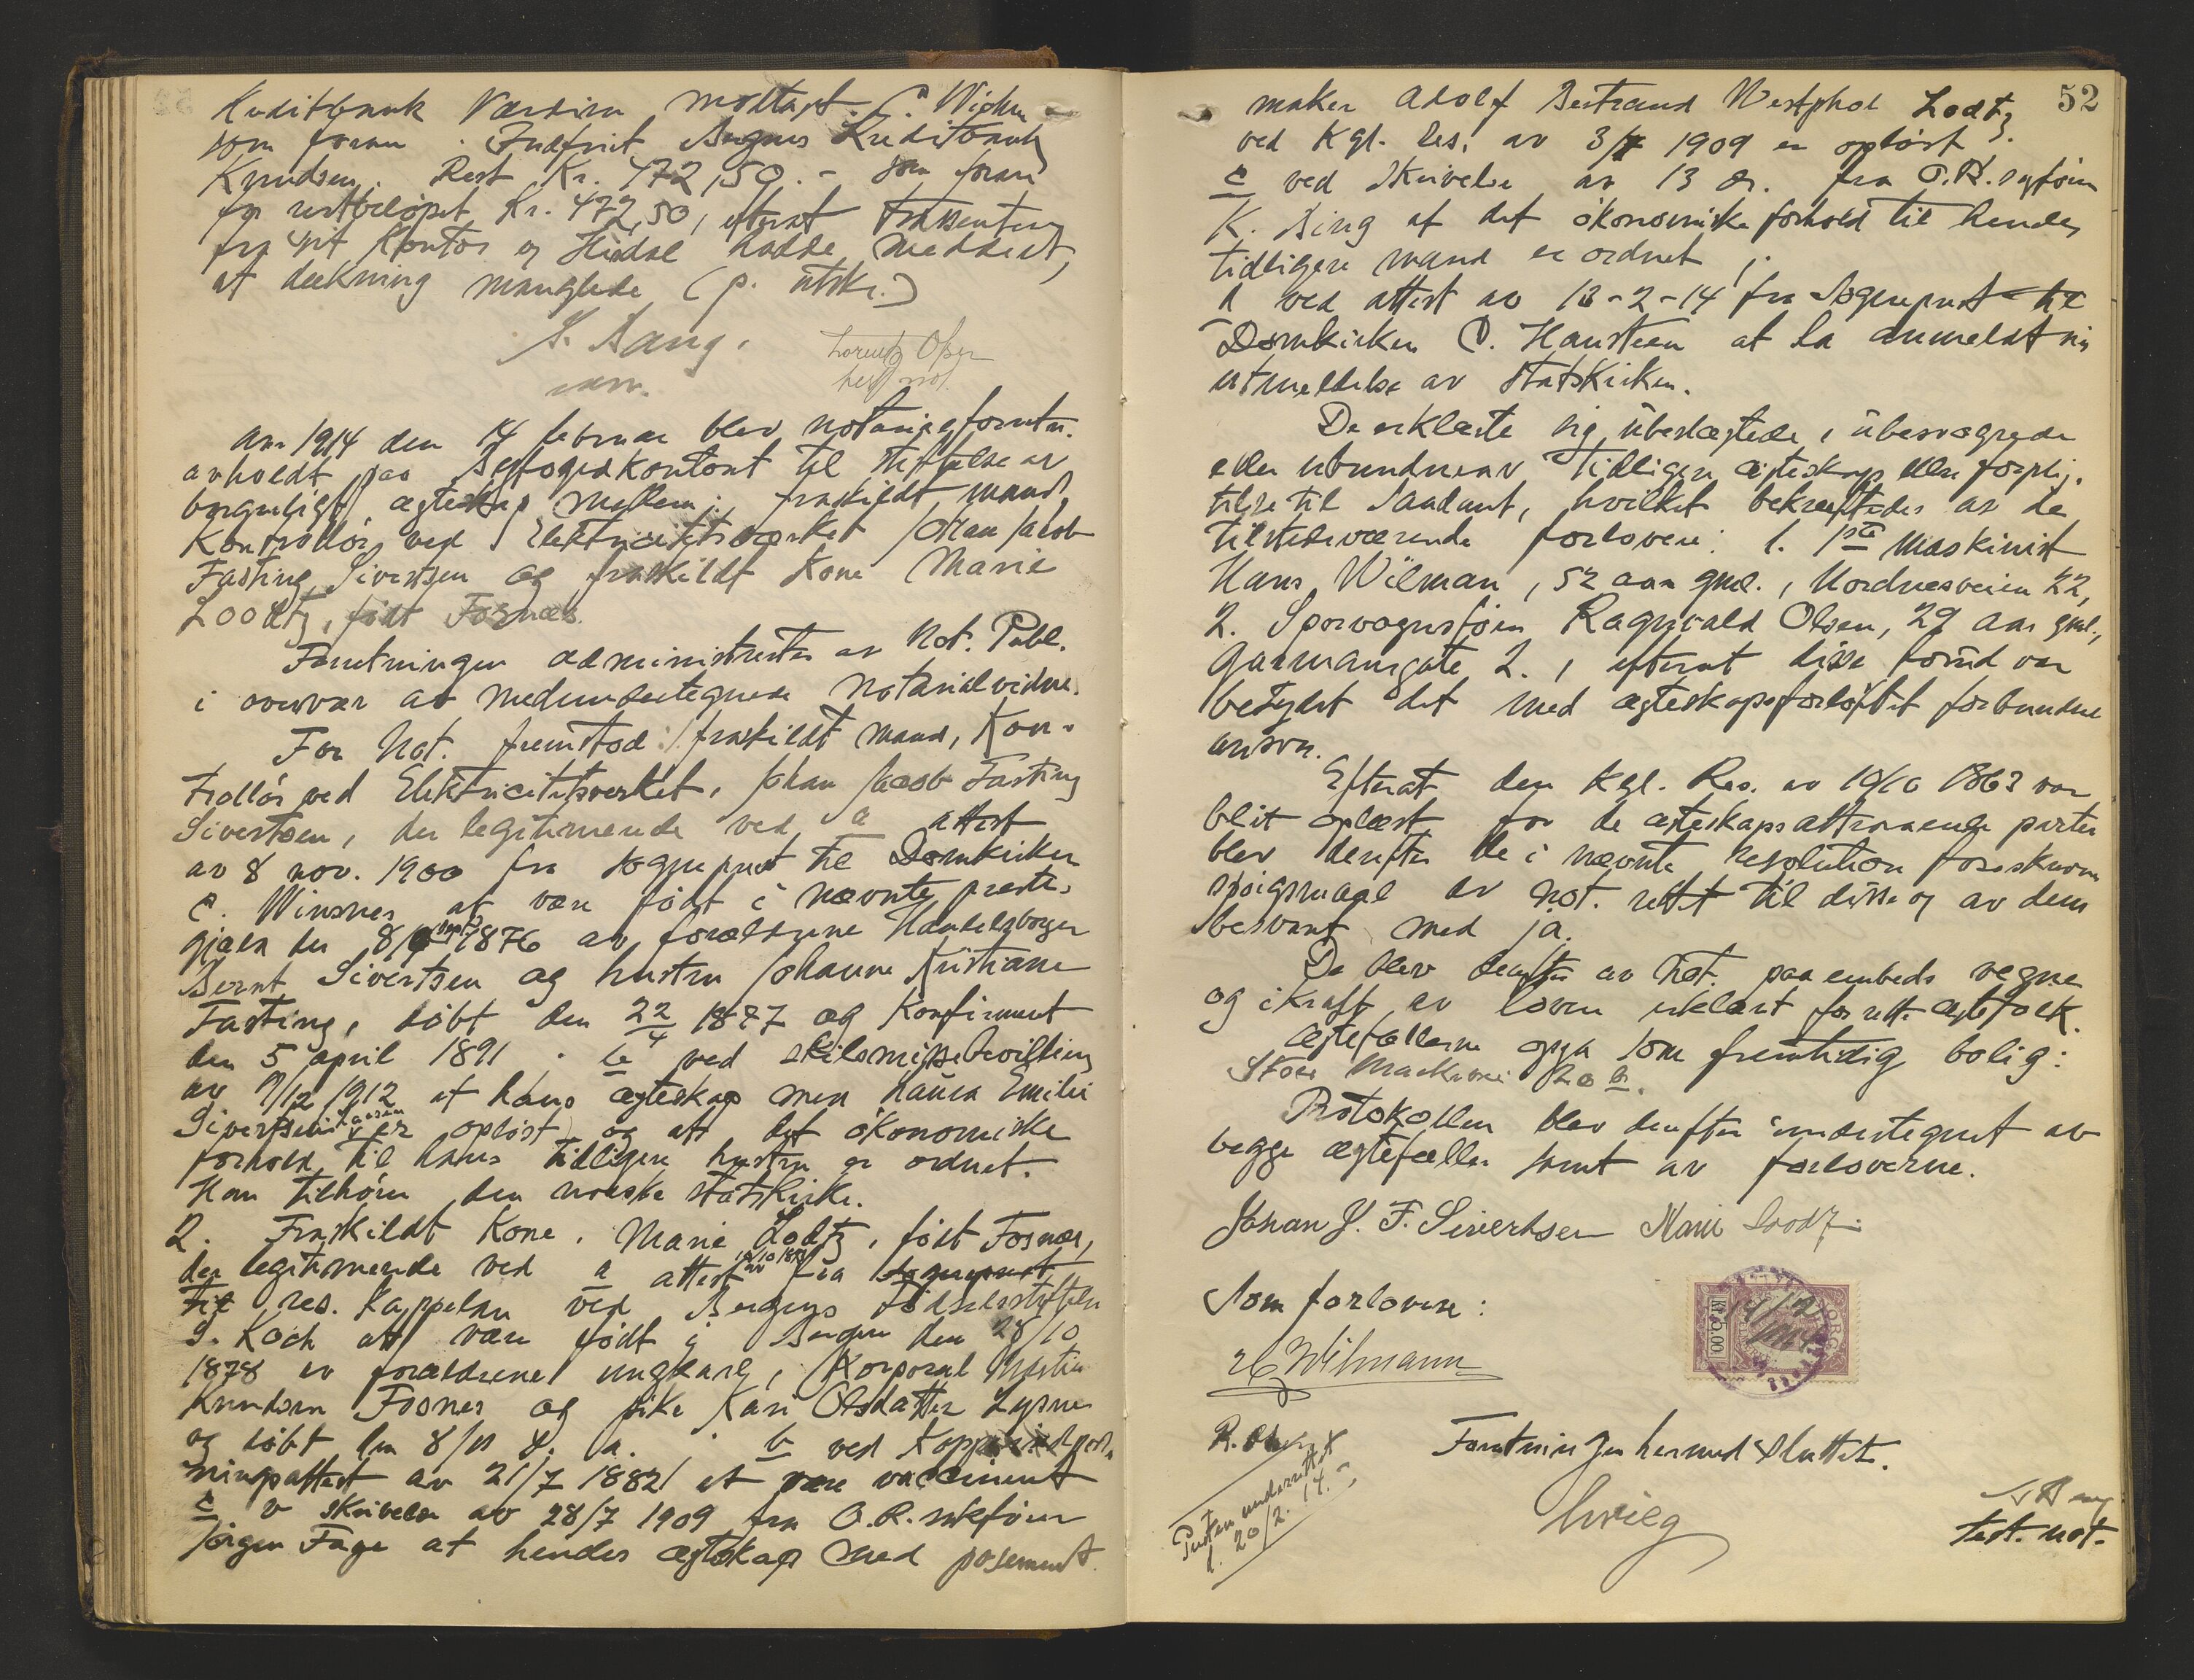 Kreditbank Værdien modtaget.
som foran. Indfriet Bergens Kreditbank
Knudsen. Rest Kr. 472,50.- som foran
for restbeløpet Kr. 472,50, efterat Trassenten
fra sit Kontor og Hindal hadde meddelt,
at dækning manglede (p. utskr.)
S. Bang.
Aar 1914 den 14 februar blev notarialforretn.
avholdt paa Byfogedkontoret til stiftelse av
borgerligt ægteskap mellem: fraskildt mand,
Kontrollør ved Elektricitetsværket Johan Jacob
Fasting Sivertsen og fraskildt Kone Marie
Loodtz, født Fosnæs.
Forretningen administrertes av Not. Publ.
i overvær av medundertegnede notarialvidne.
For Not. fremstod: 1 fraskildt mand, Kon-
trollør ved Elektricitetsverket, Johan Jacob Fasting
Sivertsen, der legitimerede ved a attest
av 8 nov. 1900 fra sogneprest til Domkirken
C. Winsnes at være født i nævnte preste-
gjæld den 8/9 sept. 1876 av forældrene Handelsborger
Bernt Sivertsen og hustru Johanne Kristiane
Fasting, døbt den 22/4 1877 og Konfirmert
den 5 april 1891. b ved skilsmissebevilling
av 9/12 1912 at hans ægteskap med Laura Emilie
Sivertsen er opløst og at det økonomiske
forhold til hans tidligere hustru er ordnet.
Han tilhører den norske statskirke.
2. Fraskildt Kone, Marie Lodtz, født Fosnæs,
der legitimerede ved a attest av fra sogneprest
til res. Kappelan ved Bergens Fødselsstiftelse
S. Koch at være født i Bergen den 28/10
1878 av forældrene ungkarl, Korporal Martin
Knudsen Fosnes og pike Kari Olsdatter Lysne
og døbt den 8/11 s. a. b ved Koppeindpod-
ningsattest av 21/7 1882 at være vaccinert
c v skrivelse av 28/7 1909 fra O.R. sakfører
Jørgen Fage at hendes ægteskap med posement-
52
maker Adolf Bertrand Westphal Lodtz
ved Kgl. Res. av 3/7 1909 er opløst
c ved Skrivelse av 13 ds. fra O.R. sagfører
K. Bing at det økonomiske forhold til hendes
tidligere mand er ordnet
d ved attest av 13-2-14 fra Sogneprest til
Domkirken C. Hansteen at ha anmeldt sin
utmeldelse av Statskirken.
De erklærte sig ubeslægtede, ubesvogrede
eller ubundne av tidligere ægteskap eller forplig-
telse til saadant, hvilket bekræftedes av de
tilstedeværende forlovere: 1. 1ste Maskinist
Hans Wilman, 52 aar gml., Nordnesveien 22,
2. Sporvognsfører Ragnvald Olsen, 29 aar gml.,
Garmansgate 2., efterat disse forud var
betydet det med ægteskapsforløftet forbundne
ansvar.
Efterat den Kgl. Res. av 19/10 1863 var
blit oplæst for de ægteskapsattraaende parter
blev derefter de i nævnte resolution foreskrevne
spørgsmaal av Not. rettet til disse og av dem
besvart med ja.
De blev derefter av Not. paa embeds vegne
og i kraft av loven erklært for rette ægtefolk.
Ægtefællerne opga som fremtidig bolig:
Store Markevei 20 b.
Protokollen blev derefter undertegnet av
begge ægtefæller samt av forloverne.
Johan J. F. Sivertsen Marie Loodtz.
Som forlovere:
H. Wilmann
R. Olsen
Forretningen hermed sluttet.
Presten underrettet
d. 20/2. 14.
KR 5.00
14/2
1914
test. not.